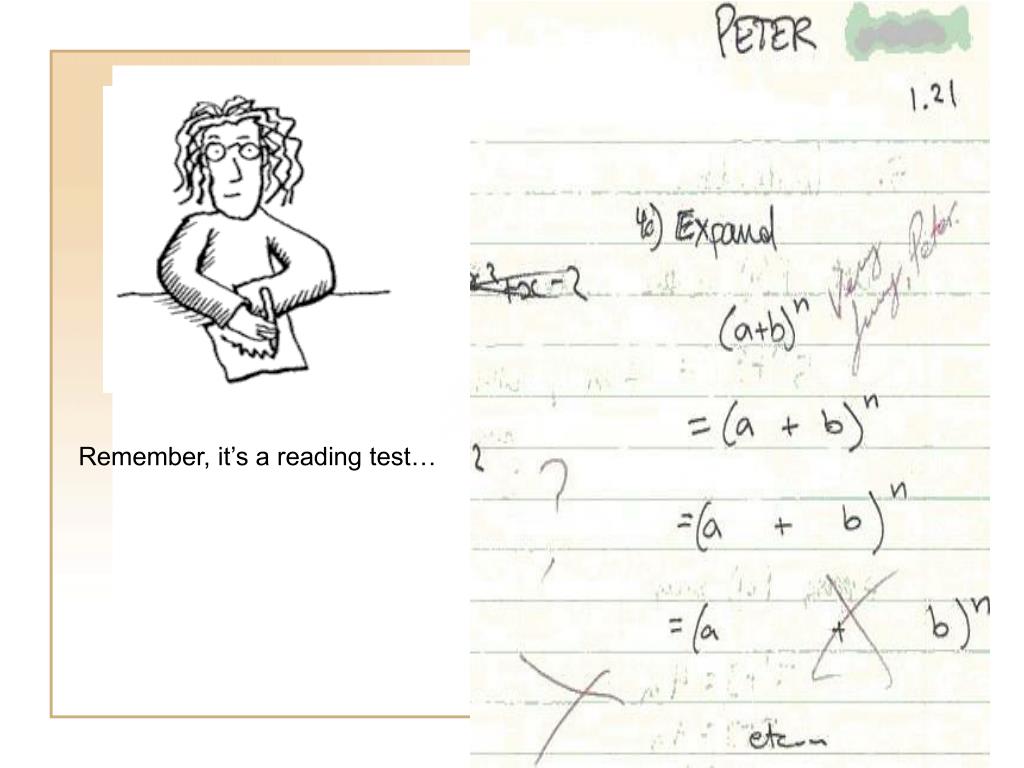 Remember, it's a reading test…
PETER
1.21
4c) Expand
Very funny, Peter.
+x - 2
(a+b)ⁿ
= (a + b)ⁿ
?
= (a + b)ⁿ
= (a + b)ⁿ
etc...